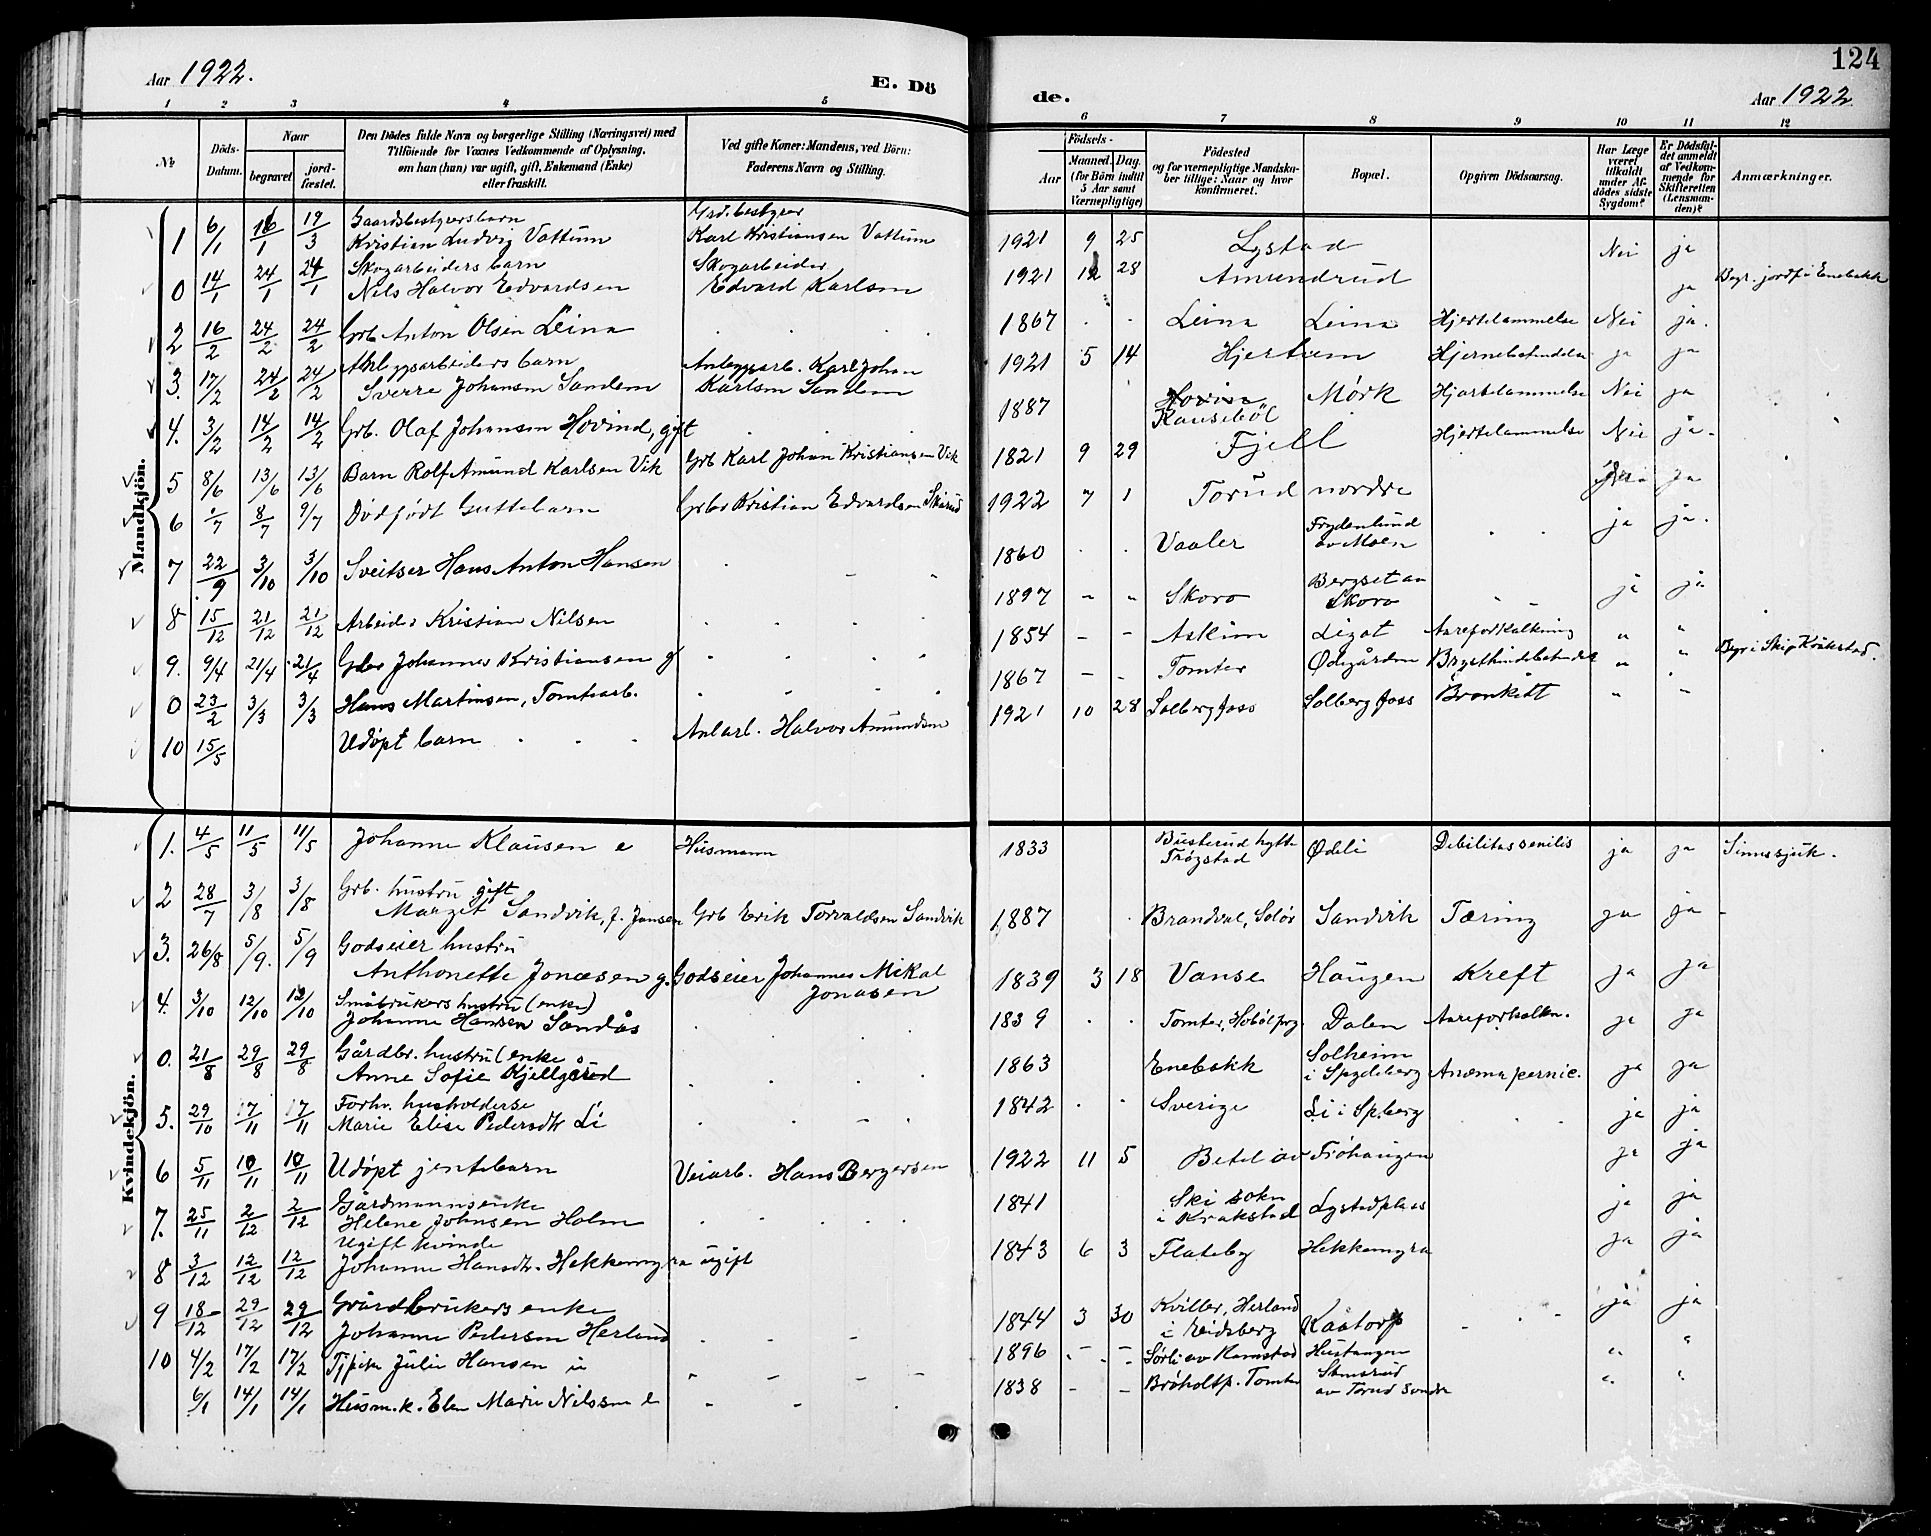 Aar 1922.
E. Dö
de.
124
Aar 1922
1 2 3 4 5
6 7 8 9 10 11 12
No
Döds-Datum.
Naar
begravet
jord-fæstet.
Den Dödes fulde Navn og borgerlige Stilling (Næringsvei) med
Tilföiende for Voxnes Vedkommende af Oplysning,
om han (hun) var ugift, gift, Enkemand (Enke)
eller fraskilt.
Ved gifte Koner: Mandens, ved Börn:
Faderens Navn og Stilling.
Födsels-
Aar
Maaned. Dag.
(for Börn indtil
5 Aar samt
Værnepligtige)
Födested
og for værnepligtige Mandska-
ber tillige: Naar og hvor
konfirmeret.
Bopæl.
Opgiven Dödsaarsag.
Har Læge
været
tilkaldt
under Af-
dödes sidste
Sygdom?
Er Dödsfal-
det anmeldt
af Vedkom-
mende for
Skifteretten
(Lensman-
den)?
Anmærkninger.
Mandkjön.
Gaardsbestyrersbarn Grd.bestyrer
1 6/1 16/1 19/3 Kristian Ludvig Vattum Karl Kristiansen Vattum 1921 9 25 Lystad Nei ja
Skogarbeiders barn Skogarbeider
0 14/1 24/1 24/1 Nils Halvor Edvardsen Edvard Karlsen 1921 12 28 Amundrud ja Begr. jordf i Enebakk
2 16/2 24/2 24/2 Grb Anton Olsen Leina 1867 Leina Leina Hjertelammelse Nei ja.
Anlegsarbeiders barn Anleggsarb. Karl Johan
3. 17/2 24/2 24/2 Sverre Johansen Sandem Karlsen Sandem 1921 5 14 Hjertum ja ja
4. 3/2 14/2 14/2 Grb. Olaf Johansen Hovind, gift 1887 Hovin Mörk Hjertelammelse Nei ja
Kausebøl
5 8/6 13/6 13/6 Barn Rolf Amund Karlsen Vik Grb Karl Johan Kristiansen Vik 1821 9 29 Fjell Hjertelammelse Nei ja.
6 1/7 8/7 9/7 Dødfødt Guttebarn Grbr Kristian Edvardsen Skisrud 1922 7 1 Torud nordre ja
7 22/9 3/10 3/10 Sveitser Hans Anton Hansen 1860 Vaaler Frydenlund av Moen ja ja.
8 15/12 21/12 21/12 Arbeider Kristian Nilsen 1897 Skoro Bergset av Skoro ja ja
9. 9/4 21/4 21/4 Gbr Johannes Kristiansen g 1854 Askim Aareforkalkning " "
0 23/2 3/3 3/3 Hans Martinsen, Tomtearb. 1867 Tomter Ødegården " Begr i Ski, Kråkstad.
10 15/5 Udøpt barn Anlarb. Halvor Amundsen 1921 10 28 Solbergfoss Solbergfoss Bronkitt " "
Kvindekjön.
1. 4/5 11/5 11/5 Johanne Klausen e Husmann 1833 Busterud hytte Trøgstad Ødeli Debilitas senilis ja ja Sinnssjuk.
Grb. hustru gift
2 28/7 3/8 3/8 Marget Sandvik, f. Jansen Grb Erik Torvaldsen Sandvik 1887 Brandval, Solør Sandvik Tæring ja ja
Godseier hustru
3. 26/8 5/9. 5/9 Anthonette Jonæsen g. Godseier Johannes Mikal Jonæsen 1839 3 18 Vanse Haugen Kreft ja ja
Småbrukers hustru (enke)
4. 3/10 12/10 12/10 Johanne Hansen Sandås 1839 Tomter, Hobøl prg. Dalen Aareforkalkn. ja ja
Gårdbr. hustru (enke
0. 21/8 29/8 29/8 Anne Sofie Kjellgård 1863 Enebakk Solheim i Spydeberg Anæma pernic. ja ja
Forhv. husholderse
5. 29/10 17/11 17/11 Marie Elise Pedersdtr Li 1842 Sverige Li i Spberg ja ja
6 5/11 10/11 10/11 Udøpt jentebarn Veiarb. Hans Bergersen 1922 11 5 Betel av Frøhaugen ja ja
Gårdmannsenke
7. 25/11 2/12 2/12 Helene Johnsen Holm 1841 Ski sokn i Krakstad Lystadplass ja ja
Ugift kvinde
8 3/12 12/12 12/12 Johanne Hansdtr. Hekkemyra ugift 1843 6 3 Flateby Hekkemyra ja ja
Gårdbrukers enke
9 18/12 29/12 29/12 Johanne Pedersen Herland 1844 3 30 Kviller, Herland i Eidsberg Kaatorp ja ja
10 4/2 17/2 17/2 Tjpike Julie Hansen u 1896 Sørli av Ramstad " "
6/1 14/1 14/1 Husm.k. Elen Marie Nilssen e 1838 Brøholtp. Tomter Stensrud av Torud søndre " "